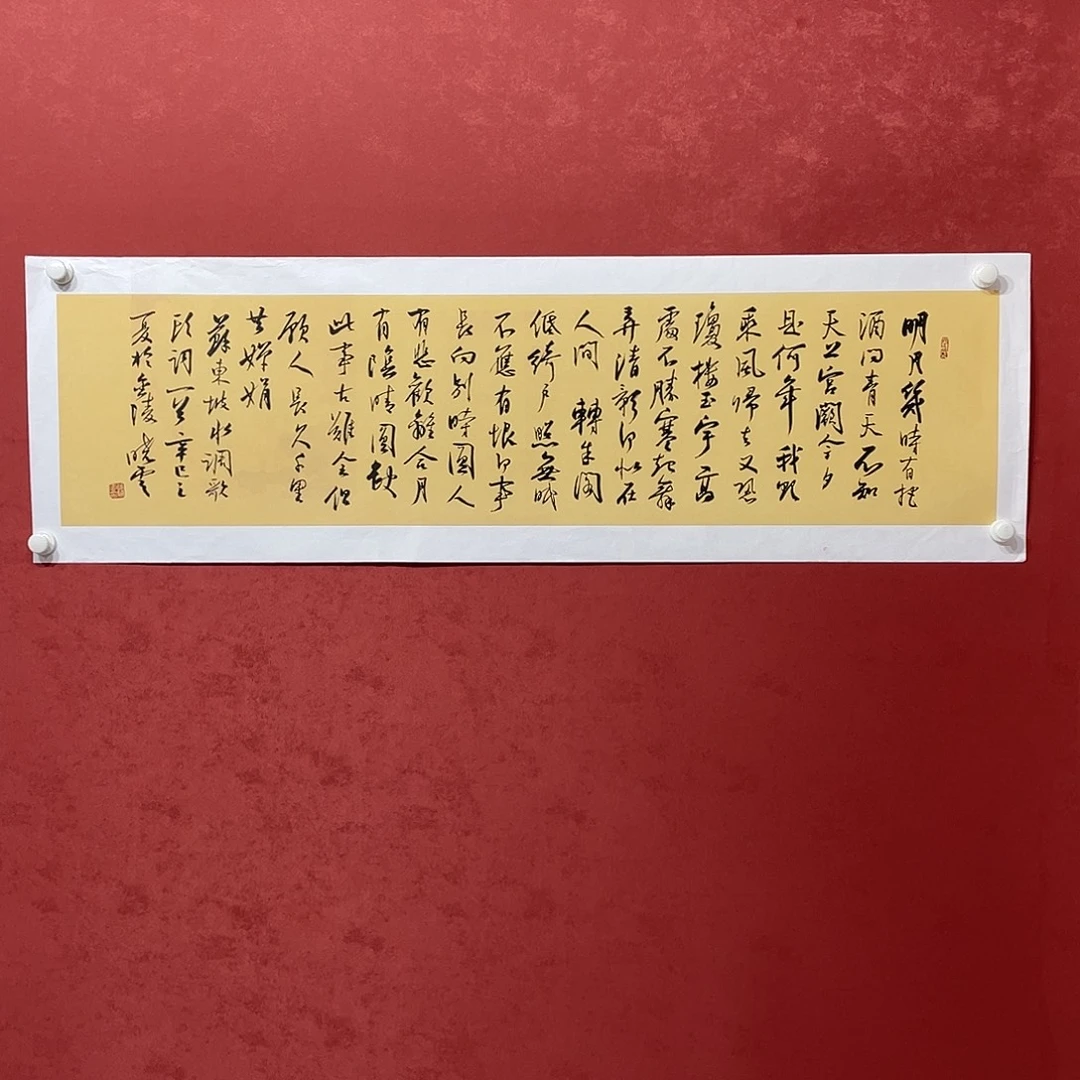 明月幾時有把
酒问青天不知
天上宫闕今夕
是何年我欲
乘风歸去又恐
瓊楼玉宇高
處不勝寒起舞
弄清影何似在
人间轉朱阁
低绮户照無眠
不應有恨何事
長向别時圆人
有悲歡離合月
有陰晴圆缺
此事古難全但
願人長久千里
共嬋娟
蘇東坡水调歌
头调一首辛巳之
夏於金陵晓雲